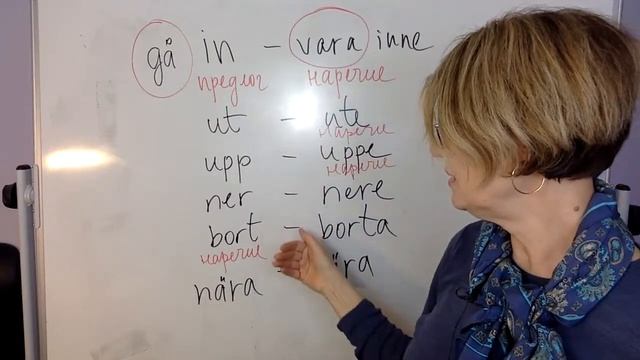 gå in – vara inne
предлог наречие
ut – ute
наречи
upp – uppe
наречие
ner – nere
bort – borta
наречие
nära